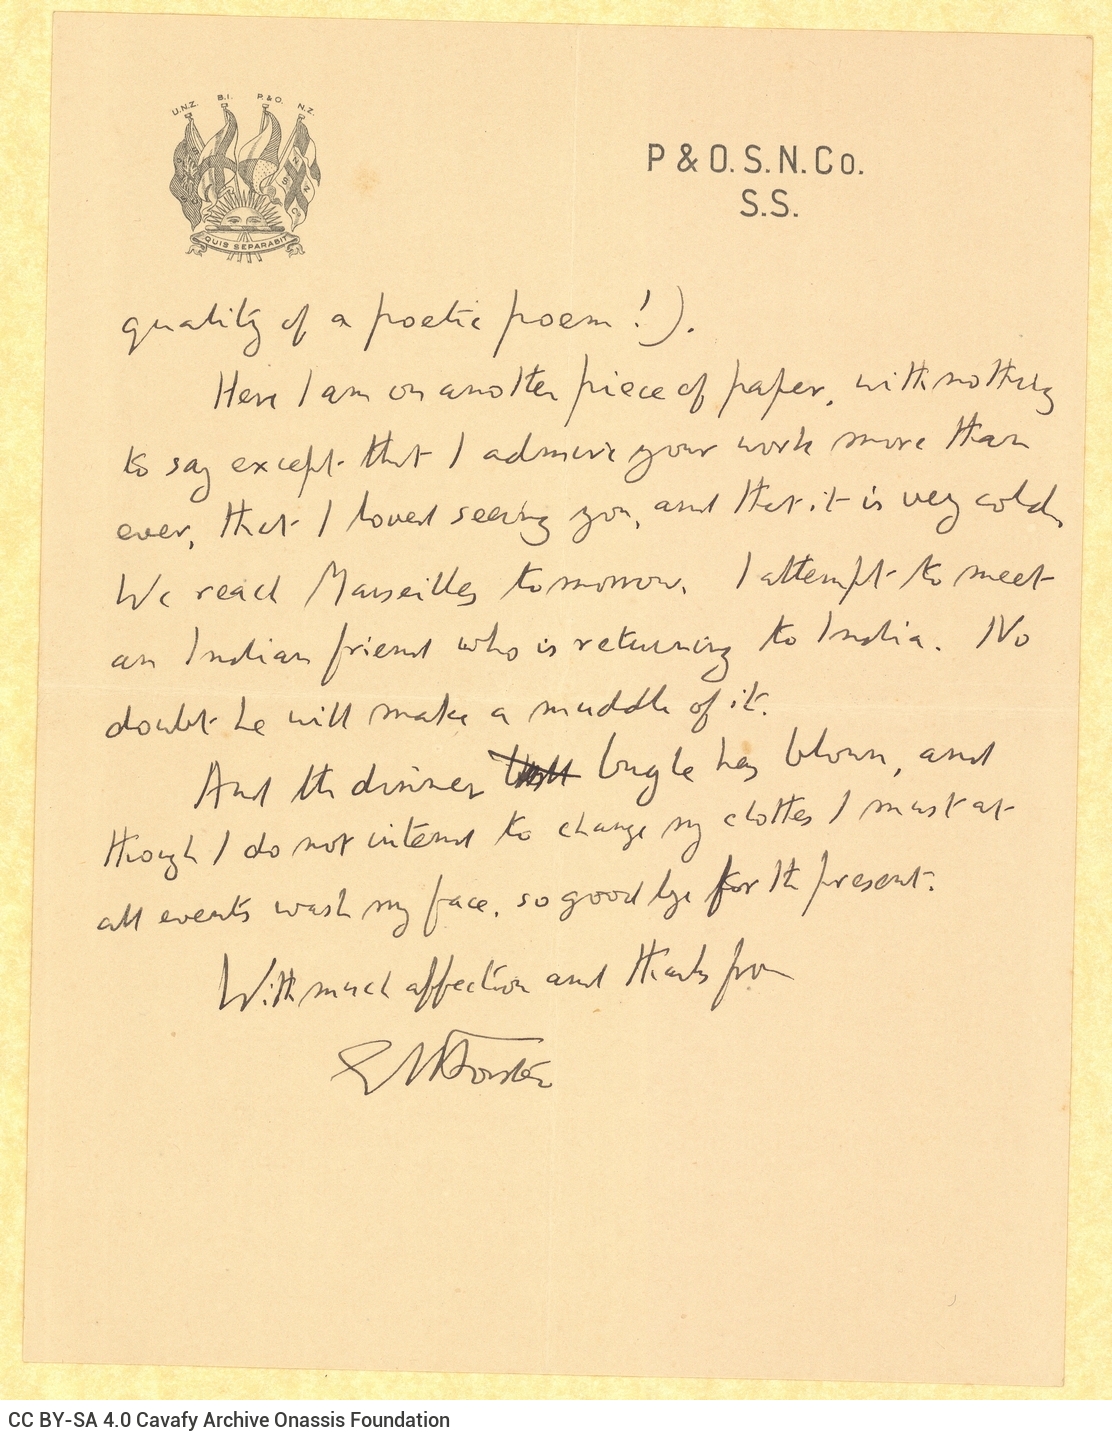 U.N.Z. B.I. P.&O. N.Z.
QUIS SEPARABIT
P & O. S. N. Co.
S.S.
quality of a poetic poem!).
Here I am on another piece of paper, with nothing
to say except that I admire your work more than
ever, that I loved seeing you, and that it is very cold.
We reach Marseilles tomorrow. I attempt to meet
an Indian friend who is returning to India. No
doubt he will make a muddle of it.
And the dinner bugle has blown, and
though I do not intend to change my clothes I must at
all events wash my face, so good bye for the present.
With much affection and thanks from
EMForster
CC BY-SA 4.0 Cavafy Archive Onassis Foundation